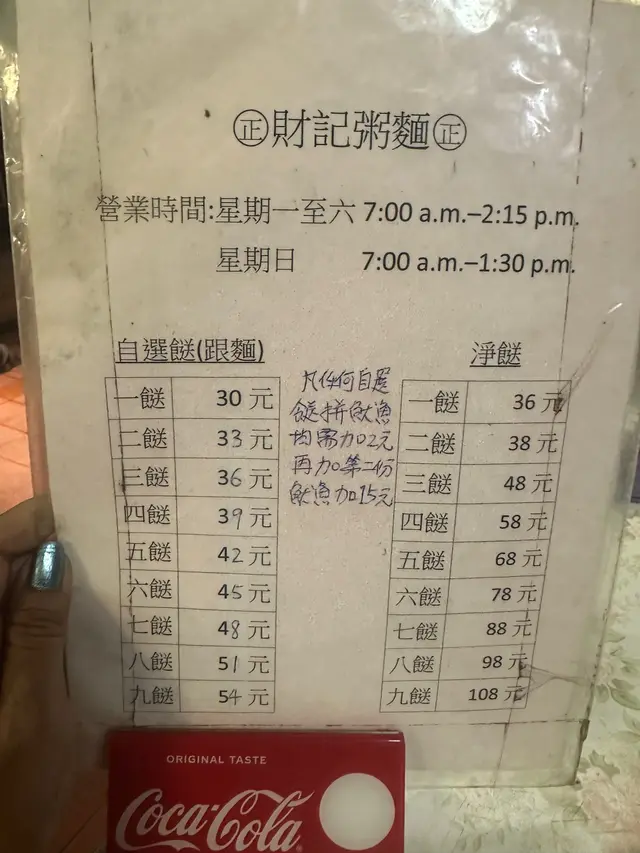 ㊣財記粥麵㊣
營業時間:星期一至六 7:00 a.m.–2:15 p.m.
星期日 7:00 a.m.–1:30 p.m.
自選餸(跟麵)
一餸 30 元
二餸 33 元
三餸 36 元
四餸 39 元
五餸 42 元
六餸 45 元
七餸 48 元
八餸 51 元
九餸 54 元
凡任何自選
餸拼魷漁
均需加2元
再加第二份
魷漁加15元
淨餸
一餸 36 元
二餸 38 元
三餸 48 元
四餸 58 元
五餸 68 元
六餸 78 元
七餸 88 元
八餸 98 元
九餸 108 元
ORIGINAL TASTE
Coca-Cola